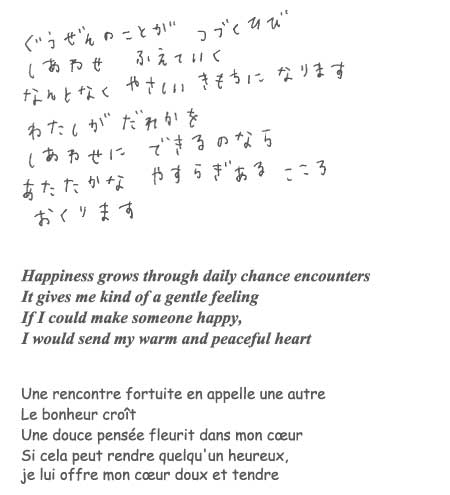 ぐうぜんのことが つづくひび
しあわせ ふえていく
なんとなく やさしい きもちに なります
わたしが だれかを
しあわせに できるのなら
あたたかな やすらぎある こころ
おくります
Happiness grows through daily chance encounters
It gives me kind of a gentle feeling
If I could make someone happy,
I would send my warm and peaceful heart
Une rencontre fortuite en appelle une autre
Le bonheur croît
Une douce pensée fleurit dans mon cœur
Si cela peut rendre quelqu'un heureux,
je lui offre mon cœur doux et tendre